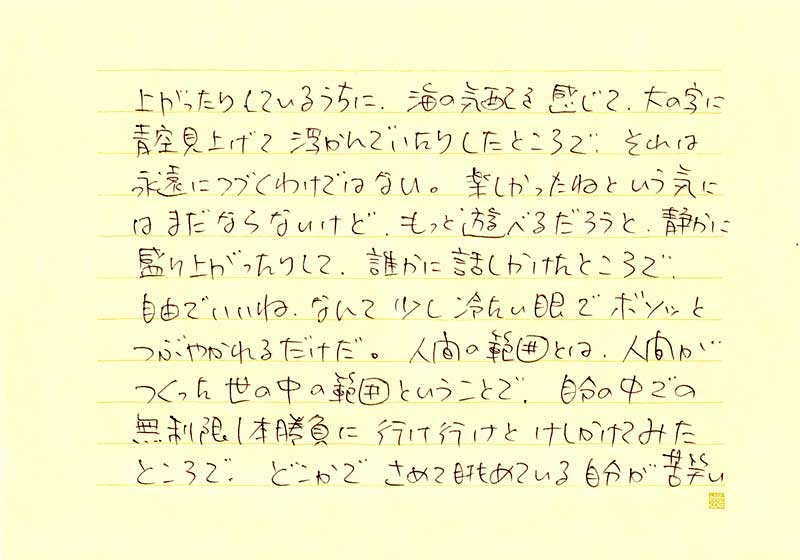 上がったりしているうちに、海の気配を感じて、大の字に
青空見上げて浮かんでいたりしたところで、それは
永遠につづくわけではない。楽しかったねという気に
はまだならないけど、もっと遊べるだろうと、静かに
盛り上がったりして、誰かに話しかけたところで、
自由でいいね、なんて少し冷たい眼でボソッと
つぶやかれるだけだ。人間の範囲とは、人間が
つくった世の中の範囲ということで、自分の中での
無制限1本勝負に行け行けとけしかけてみた
ところで、どこかでさめて眺めている自分が苦笑い